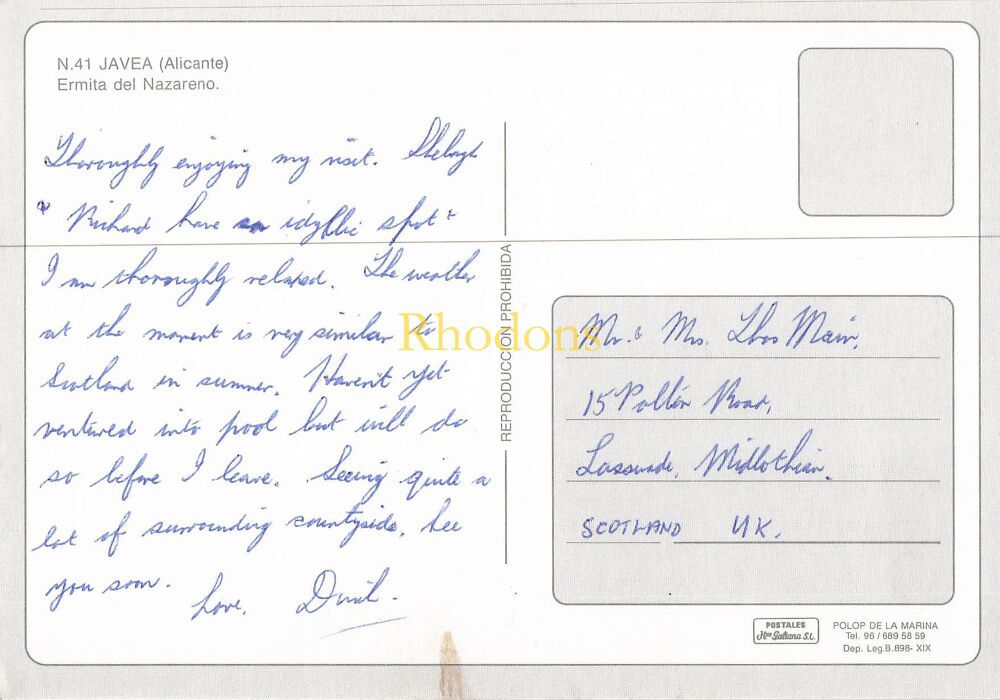 N.41 JAVEA (Alicante)
Ermita del Nazareno.
Thoroughly enjoying my visit. Shelagh
& Richard have an idyllic spot &
I am thoroughly relaxed. The weather
at the moment is very similar to
Scotland in summer. Haven't yet
ventured into pool but will do
so before I leave. Seeing quite a
lot of surrounding countryside. See
you soon.
Love,
REPRODUCCION PROHIBIDA
Rhodons
Mr. & Mrs. Thos Main,
15 Road,
Lasswade, Midlothian.
SCOTLAND UK.
POSTALES
Hnos Galiana S.L.
POLOP DE LA MARINA
Tel. 96 / 689 58 59
Dep. Leg. B. 898- XIX